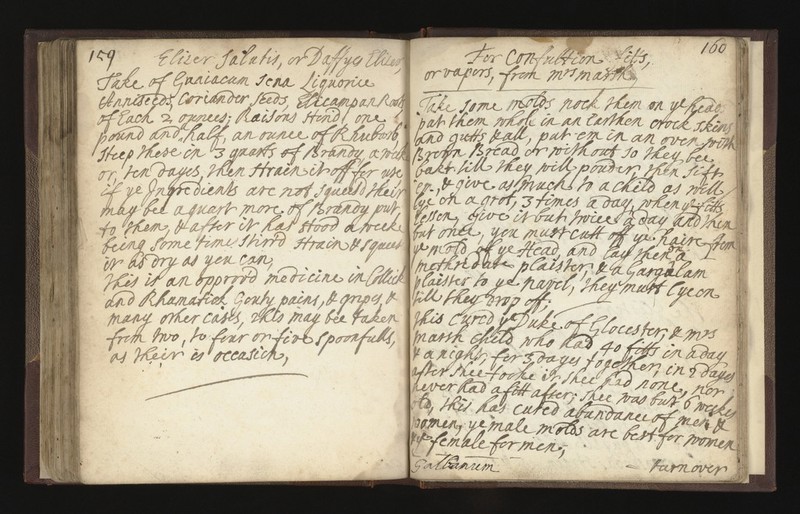 159
Elixer Salutis, or Daffyes Elixer,
Take of Guaiacum Sena Liquorice
Anniseeds Coriander Seeds, Elicampan Roots
of Each 2 ounces; Raisons Ston'd one
pound and half, an ounce of Rhubarb,
Steep these in 3 quarts of Brandy a week
or, ten dayes, then strain it off for use
if ye Ingredients are not squeesd their
may bee a quart more of Brandy put
to them, & after it has stood a weeke
being some time stirr'd strain & squees
it as dry as you can,
this is an approv'd medicine in Collick
and Rhumatick Gouty pains, & gripes, &
many other cases, this may bee taken
from two, to four or five spoonfulls,
as their is occasion,
160
For Convultion fitts,
or vapors, from mrs marth
Take some molds nock them on ye head
put them whole in an Earthen crock skins
and gutts & all, put em in an oven with
Brown Bread or without so they bee
bakt till they will pouder, then sift
em, & give as much to a child as will
lye on a grot, 3 times a day, when ye fitts
lessen, give it but twice a day and then
but once, you must cutt off ye hair from
ye mold of ye Head, and lay then a
methridate plaister, & a Gargalam
plaister to ye navel, they must lye on
till they drop off;
this Cured ye Duke of Glocester, & mrs
marth child who had 40 fitts in a day
& a night for 3 dayes together, in 2 dayes
after shee tooke it, shee had none, nor
never had a fitt after, shee was but 6 weekes
old, this has cured abundance of men &
women, ye male molds are best for women
& ye female for men,
Galbanum turn over